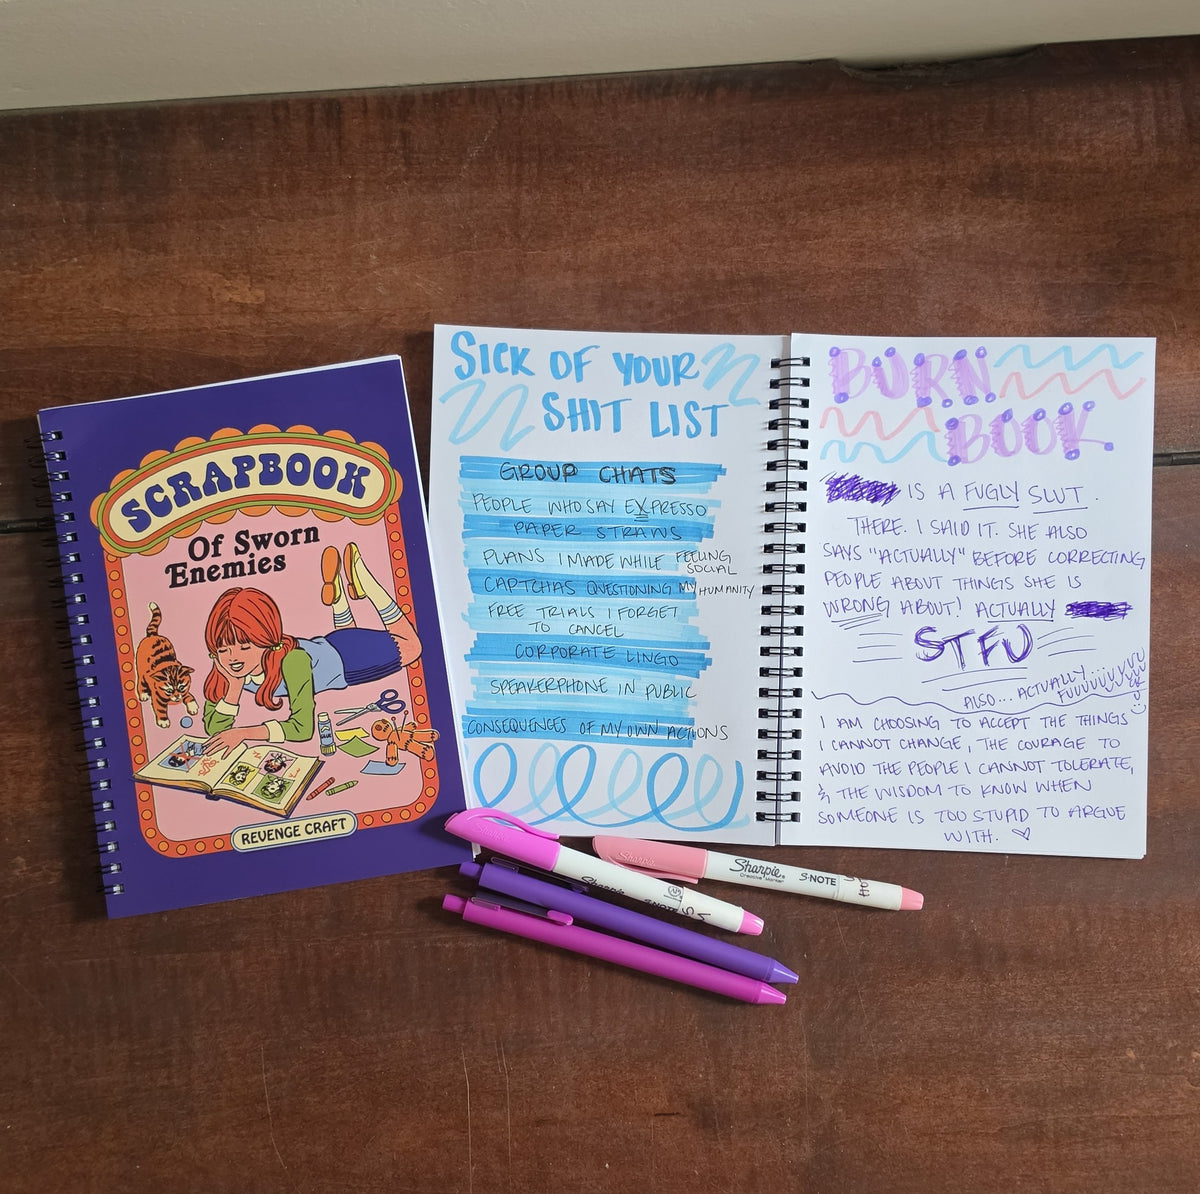 SCRAPBOOK
Of Sworn
Enemies
REVENGE CRAFT
SICK OF YOUR
SHIT LIST
GROUP CHATS
PEOPLE WHO SAY EXPRESSO
PAPER STRAWS
PLANS I MADE WHILE FEELING
SOCIAL
CAPTCHAS QUESTIONING MY HUMANITY
FREE TRIALS I FORGET
TO CANCEL
CORPORATE LINGO
SPEAKERPHONE IN PUBLIC
CONSEQUENCES OF MY OWN ACTIONS
BURN
BOOK
IS A FUGLY SLUT.
THERE. I SAID IT. SHE ALSO
SAYS "ACTUALLY" BEFORE CORRECTING
PEOPLE ABOUT THINGS SHE IS
WRONG ABOUT! ACTUALLY
STFU
ALSO... ACTUALLY
I AM CHOOSING TO ACCEPT THE THINGS
I CANNOT CHANGE, THE COURAGE TO
AVOID THE PEOPLE I CANNOT TOLERATE,
& THE WISDOM TO KNOW WHEN
SOMEONE IS TOO STUPID TO ARGUE
WITH. ♡
Sharpie
S-NOTE
Sharpie
Creative Marker
S-NOTE